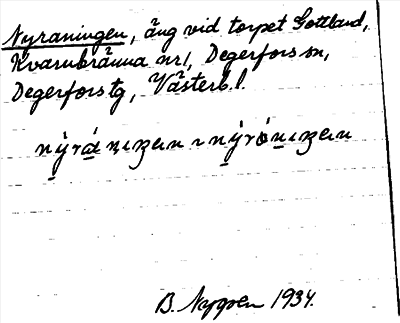 Nyraningen, äng vid torpet Gottland,
Kvarnbränna nr 1, Degerfors sn,
Degerfors tg, Västerb. l.
B. Nygren 1934.